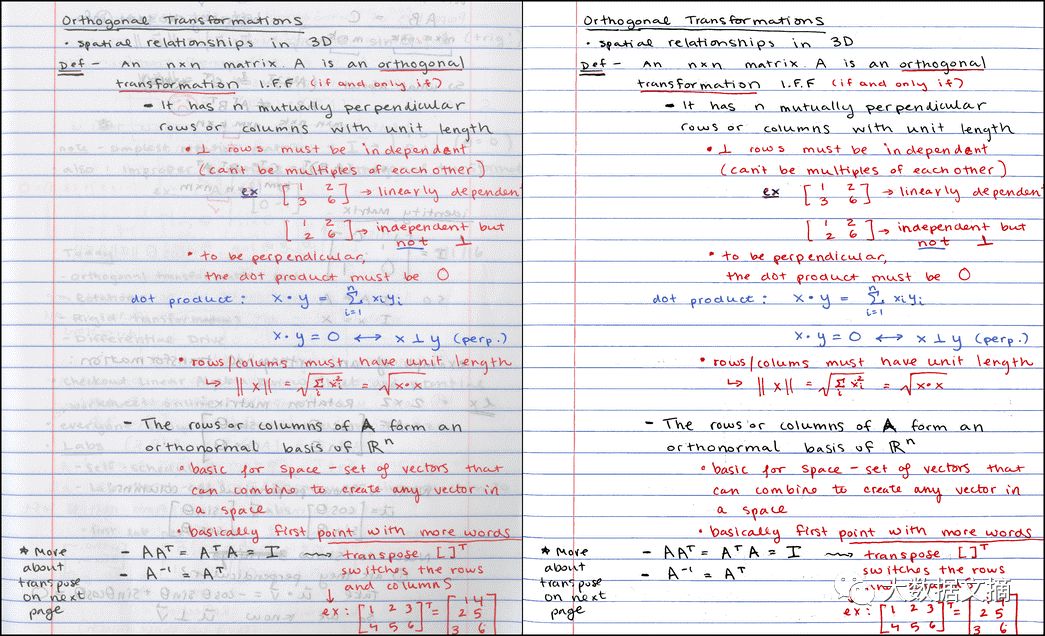 Orthogonal Transformations
• spatial relationships in 3D
Def - An n×n matrix A is an orthogonal
transformation I.F.F (if and only if)
- It has n mutually perpendicular
rows or columns with unit length
• ⊥ rows must be independent
(can't be multiples of each other)
ex [1 2
3 6] → linearly dependent
[1 2
2 6] → independent but
not ⊥
• to be perpendicular,
the dot product must be 0
dot product: x • y = n∑i=1 xiyi
x • y = 0 ⟷ x ⊥ y (perp.)
• rows/colums must have unit length
↳ || x || = √∑i xi² = √x•x
- The rows or columns of A form an
orthonormal basis of ℝⁿ
• basic for space - set of vectors that
can combine to create any vector in
a space
• basically first point with more words
- AAᵀ = AᵀA = I ⟿ transpose [ ]ᵀ
- A⁻¹ = Aᵀ switches the rows
and columns
↓
ex: [1 2 3
4 5 6]ᵀ = [1 4
2 5
3 6]
* More
about
transpose
on next
page
Orthogonal Transformations
• spatial relationships in 3D
Def - An n×n matrix A is an orthogonal
transformation I.F.F (if and only if)
- It has n mutually perpendicular
rows or columns with unit length
• ⊥ rows must be independent
(can't be multiples of each other)
ex [1 2
3 6] → linearly dependent
[1 2
2 6] → independent but
not ⊥
• to be perpendicular,
the dot product must be 0
dot product: x • y = n∑i=1 xiyi
x • y = 0 ⟷ x ⊥ y (perp.)
• rows/colums must have unit length
↳ || x || = √∑i xi² = √x•x
- The rows or columns of A form an
orthonormal basis of ℝⁿ
• basic for space - set of vectors that
can combine to create any vector in
a space
• basically first point with more words
- AAᵀ = AᵀA = I ⟿ transpose [ ]ᵀ
- A⁻¹ = Aᵀ switches the rows
ex: [1 2 3
4 5 6]ᵀ = [
2 5
3 6]
* More
about
transpose
on next
page
大数据文摘